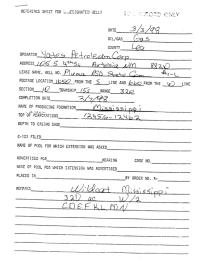 REFERENCE SHEET FOR UNDESIGNATED WELLS
DATE 3/3/92
OIL/GAS Gas
COUNTY Lea
OPERATOR Yates Petroleum Corp.
ADDRESS 105 S. 4th St. Artesia NM 88210
LEASE NAME, WELL NO. State Com #1-L
FOOTAGE LOCATION 1650 FROM THE S LINE AND 660 FROM THE W LINE
SECTION 10 TOWNSHIP 15S RANGE 32E
COMPLETION DATE
NAME OF PRODUCING FORMATION Mississippi
TOP OF PERFORATIONS 12456-12462
DEPTH TO CASING SHOE
C-123 FILED
NAME OF POOL FOR WHICH EXTENSION WAS ASKED
ADVERTISED FOR HEARING CASE NO.
NAME OF POOL FOR WHICH EXTENSION WAS ADVERTISED
PLACED IN BY ORDER NO. R-
REMARKS Wildcat Mississippi
320 ac W/2
CDEFKLMN